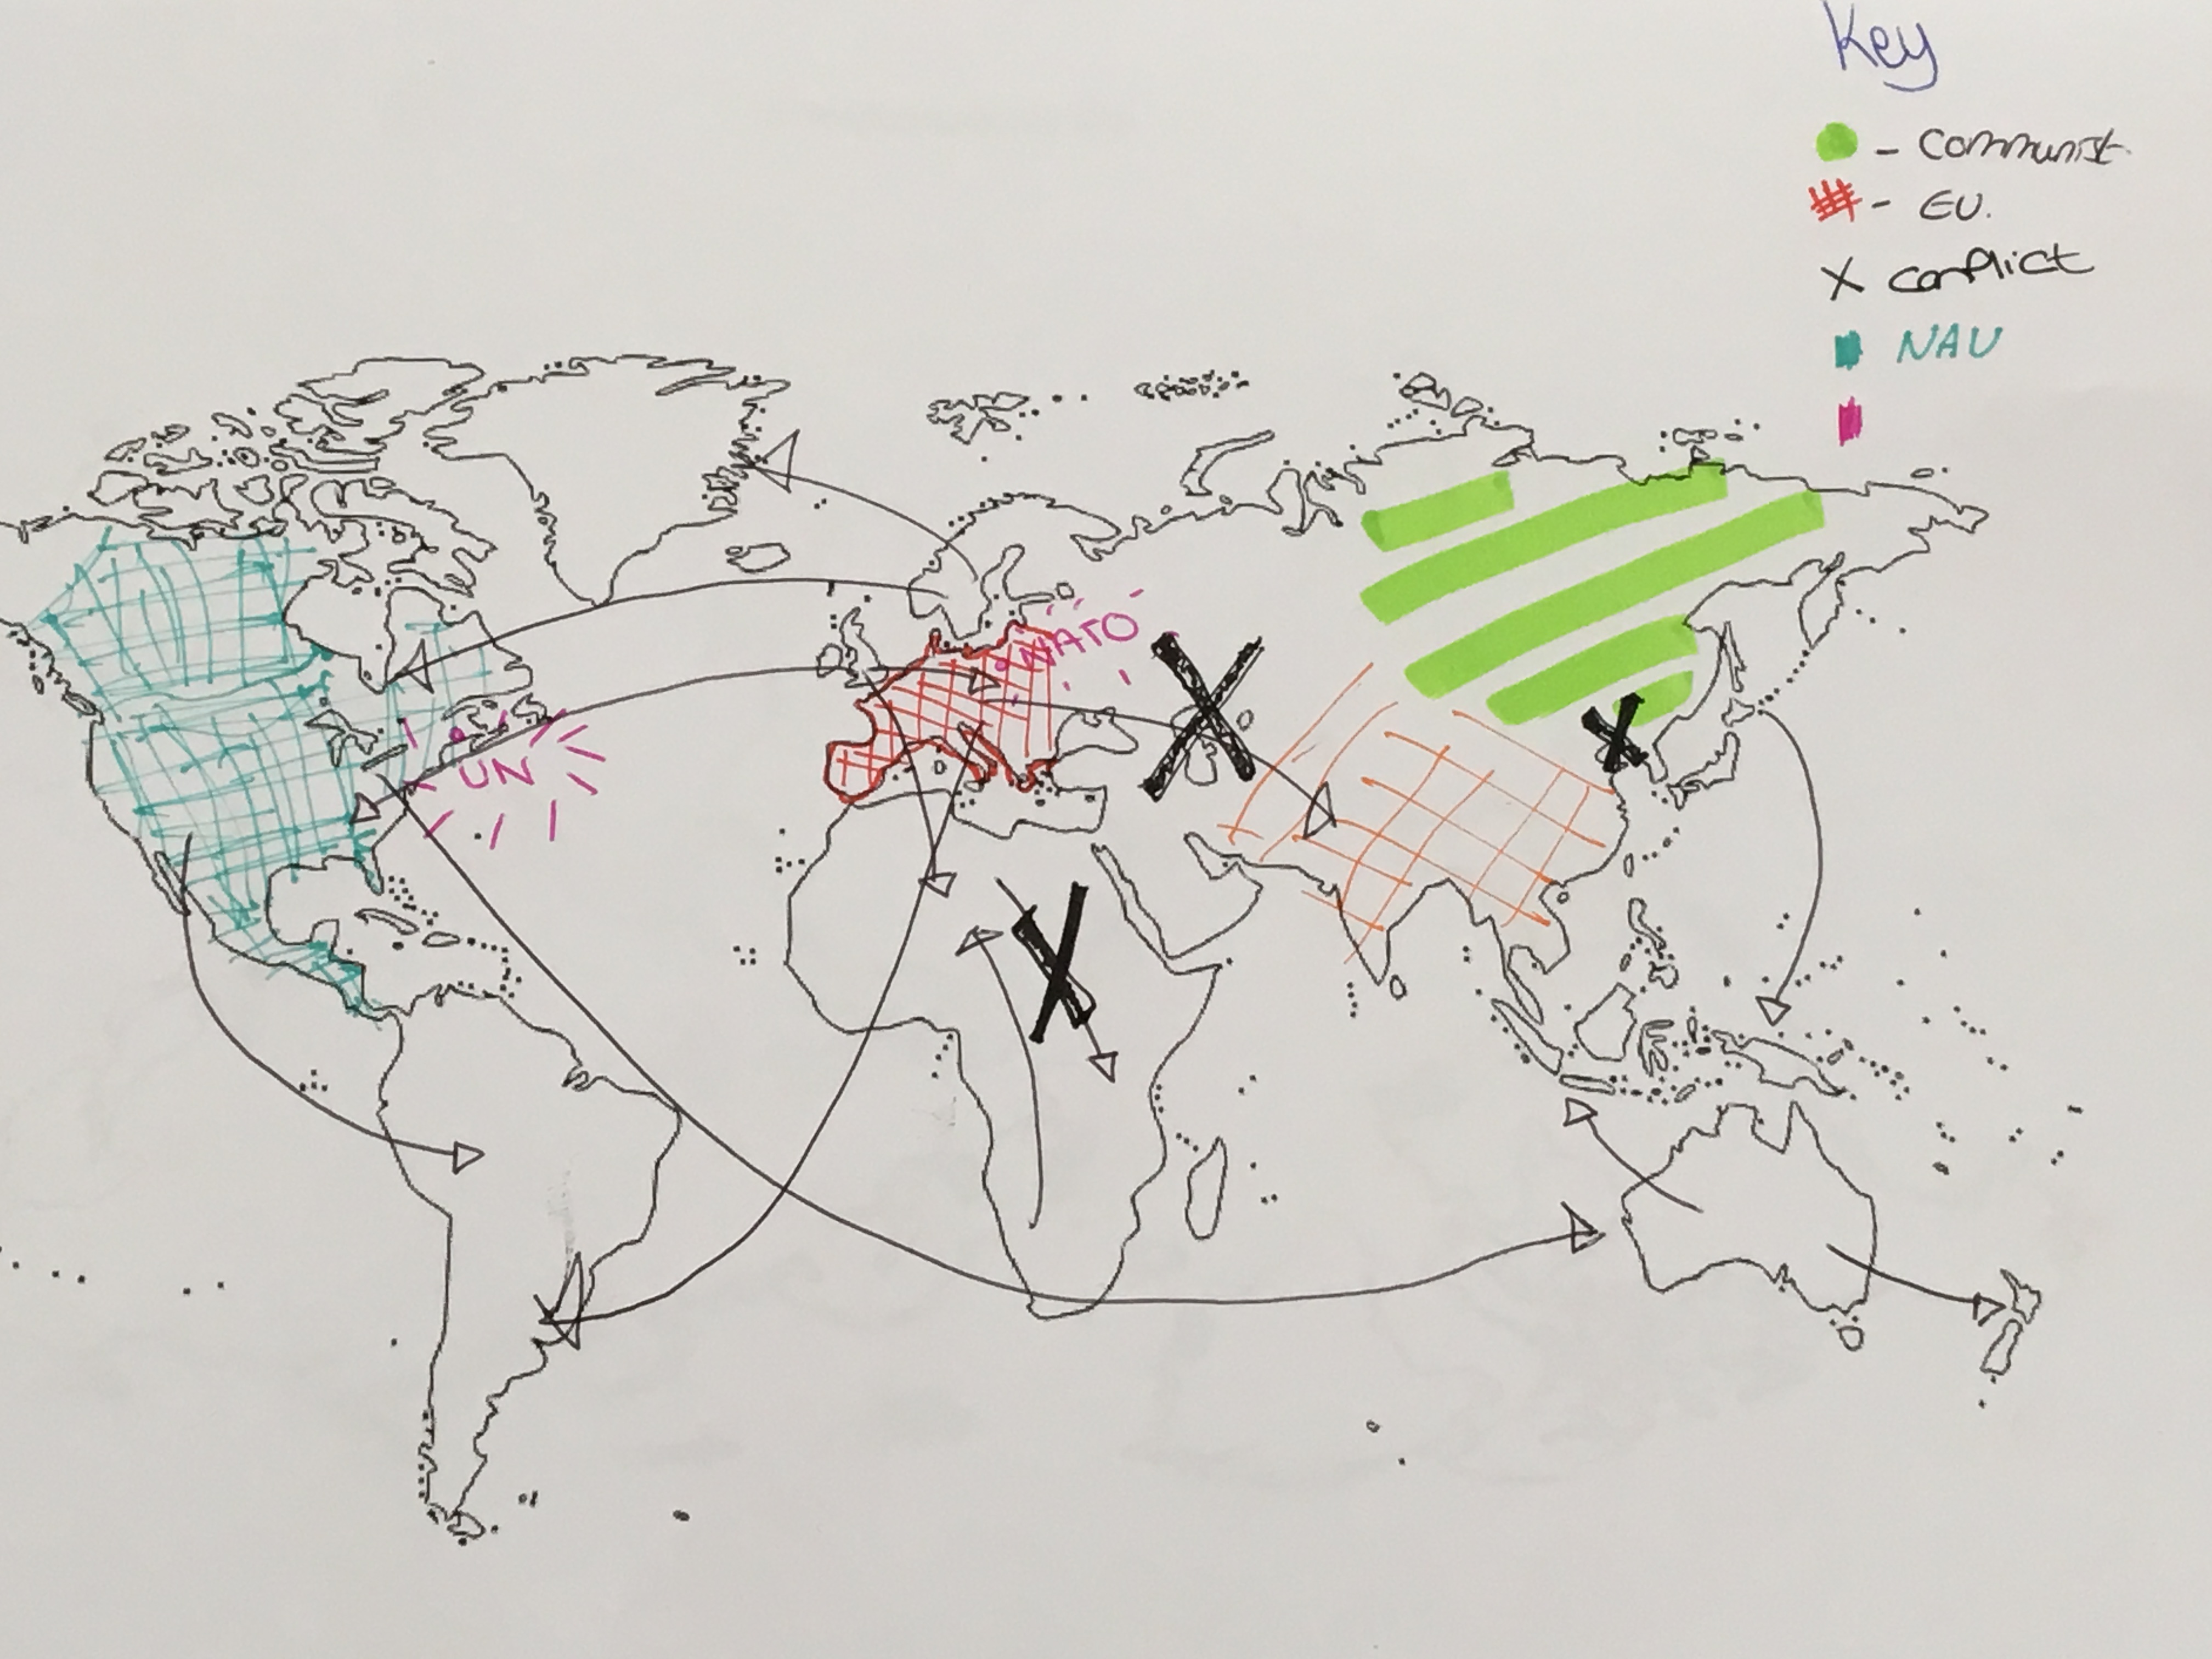 Key
- Communist.
- EU.
X conflict
NAU
NATO
UN